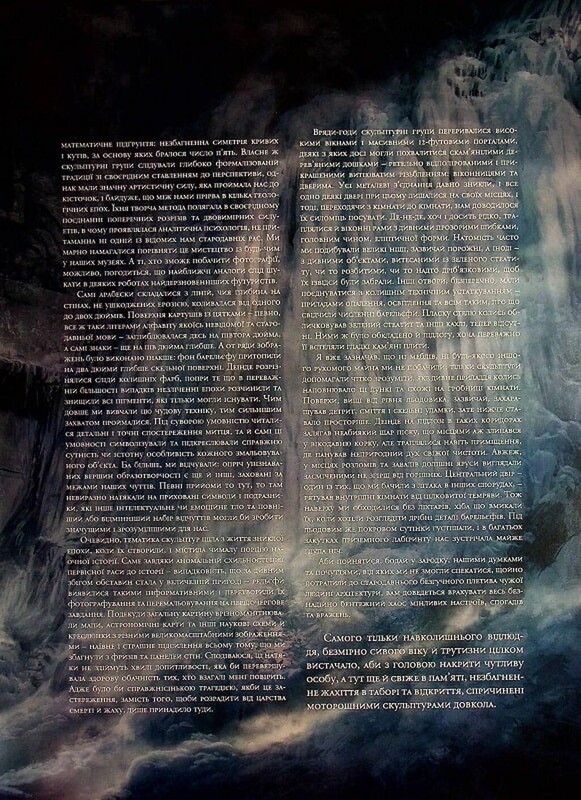 математичне підґрунтя: незбагненна симетрія кривих
і кутів, за основу яких бралося число п'ять. Власне ж
скульптурні групи слідували глибоко формалізованій
традиції зі своєрідним ставленням до перспективи, од-
нак мали значну артистичну силу, яка проймала нас до
кісточок, і байдуже, що між нами прірва в кілька геоло-
гічних епох. Їхня творча метода полягала в своєрідному
поєднанні поперечних розрізів та двовимірних силу-
етів, в чому проявлялася аналітична психологія, не при-
таманна ні одній із відомих нам стародавніх рас. Ми
марно намагалися порівняти це мистецтво із будь-чим
у наших музеях. А ті, хто зможе побачити фотографії,
можливо, погодиться, що найближчі аналоги слід шу-
кати в деяких роботах найдерзновенніших футуристів.
Самі арабески складалися з ліній, чия глибина на
стінах, не ушкоджених ерозією, коливалася від одного
до двох дюймів. Поверхня картушів із цятками – певно,
все ж таки літерами алфавіту якоїсь невідомої та старо-
давньої мови – заглиблювалася десь на півтора дюйма,
а самі знаки – ще на пів дюйма глибше. А от ряди зобра-
жень було виконано інакше: фон барельєфу притопили
на два дюйми глибше скельної поверхні. Деінде розріз-
нялися сліди колишніх фарб, попри те що в переваж-
ній більшості випадків незліченні епохи розчинили та
знищили всі пігменти, які тільки могли існувати. Чим
довше ми вивчали цю чудову техніку, тим сильнішим
захватом проймалися. Під суворою умовністю читали-
ся детальні і точні спостереження митця, та й самі ці
умовності символізували та підкреслювали справжню
сутність чи істотну особливість кожного змальовува-
ного об'єкта. Ба більше, ми відчували: опріч упізнава-
них вершин образотворчості є ще й інші, заховані за
межами наших чуттів. Певні прийоми то тут, то там
невиразно натякали на приховані символи і подразни-
ки, які інше інтелектуальне чи емоційне тло та повні-
ший або відмінніший набір відчуттів могли би зробити
значущими і зрозумілішими для нас.
Очевидно, тематика скульптур йшла з життя зниклої
епохи, коли їх створили, і містила чималу порцію на-
очної історії. Саме завдяки аномальній схильності цієї
первісної раси до історії – випадковість, що дивним
збігом обставин стала у величезній пригоді – рельєфи
виявилися такими інформативними і перетворили їх
фотографування та перемальовування на першочергове
завдання. Подекуди загальну картину урізноманітнюва-
ли мапи, астрономічні карти та інші наукові схеми й
креслюнки з різними великомасштабними зображення-
ми – наївне і страшне підкріплення всьому тому, що ми
збагнули з фризів та панелей стін. Сподіваюся, ці натя-
ки не здіймуть хвилі допитливості, яка би перевершу-
вала здорову обачність тих, хто взагалі мені повірить.
Адже було би справжнісінькою трагедією, якби це за-
стереження, замість того, щоби розрадити від царства
смерті й жаху, лише принадило туди.
Вряди-годи скульптурні групи переривалися висо-
кими вікнами і масивними 12-футовими порталами,
деякі з яких досі могли похвалитися скам'янілими де-
рев'яними дошками – ретельно відполірованими і при-
крашеними витіюватим різьбленням віконницями та
дверима. Усі металеві з'єднання давно зникли, і все
одно деякі двері при цьому лишалися на своїх місцях, і
тоді, переходячи з кімнати до кімнати, нам доводилося
їх силоміць посувати. Де-не-де, хоч і досить рідко, трап-
лялися й віконні рами з дивними прозорими шибками,
головним чином, еліптичної форми. Натомість часто
ми подибували великі ніші, зазвичай порожні, а іноді –
з дивними об'єктами, витесаними із зеленого стеати-
ту, чи то розбитими, чи то надто дріб'язковими, щоб
їх ізвідси були забрали. Інші отвори, безперечно, мали
поєднуватися з колишнім технічним устаткуванням –
приладами опалення, освітлення та всім таким, про що
свідчили численні барельєфи. Пласку стелю колись об-
личковував зелений стеатит та інші кахлі, тепер відсут-
ні. Ними ж було обкладено й підлогу, хоча переважно
її встеляли гладкі кам'яні плити.
Я вже зазначав, що ні меблів, ні будь-якого іншо-
го рухомого майна ми не побачили; тільки скульптури
допомагали чітко зрозуміти, які дивні приладдя колись
наповнювали ці пункі та схожі на гробниці кімнати.
Поверхи, вищі від рівня льодовика, зазвичай, захара-
щував детрит, сміття і скельні уламки, зате нижче ста-
вало просторіше. Деінде на підлозі в таких коридорах
залягав неабиякий шар піску, що місцями аж злипався
у шкідливу корку, але траплялися навіть приміщення,
де панував неприродний дух свіжої чистоти. Авжеж,
у місцях розломів та завалів долішні яруси виглядали
засміченими не згірш від горішніх. Центральний двір –
один із тих, що ми бачили з літака в інших спорудах, –
рятував внутрішні кімнати від цілковитої темряви. Тож
наверху ми обходилися без ліхтарів, хіба що вмикали
їх, коли хотіли розгледіти дрібні деталі барельєфів. Під
льодовим же покровом сутінки густішали, і в багатьох
закутках приземного лабіринту нас зустрічала майже
глупа ніч.
Аби пройнятися, бодай узагоді, нашими думками
та почуттями, від яких ми не змогли спекатися, щойно
потрапили до стародавнього безгучного плетива чужої
людині архітектури, вам доведеться врахувати весь без-
надійно бентежний хаос мінливих настроїв, спогадів
та вражень.
Самого тільки навколишнього відлюд-
дя, безмірно сивого віку й трутизни цілком
вистачало, аби з головою накрити чутливу
особу, а тут ще й свіже в пам'яті, незбагнен-
не жахіття в таборі та відкриття, спричинені
моторошними скульптурами довкола.